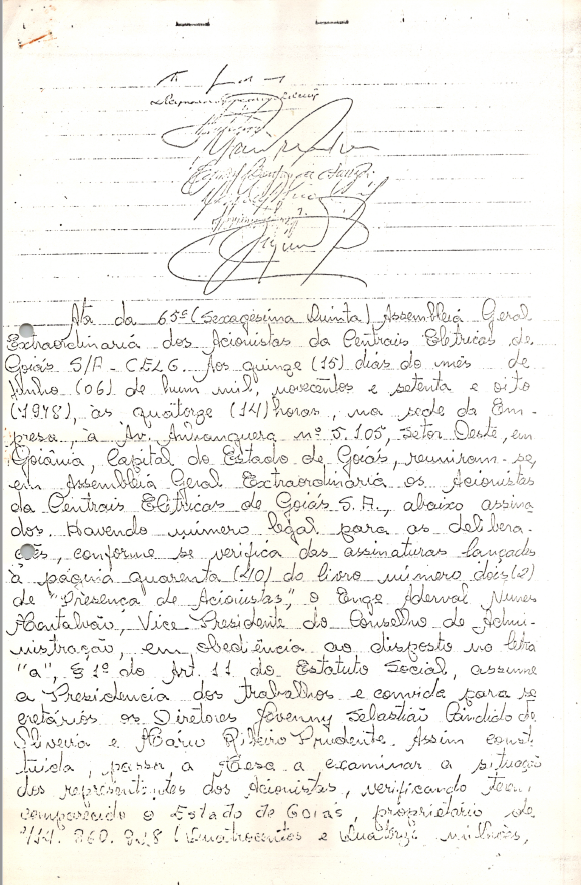 Ata da 65ª (Sexagésima Quinta) Assembléia Geral
Extraordinária dos Acionistas da Centrais Elétricas de
Goiás S/A - CELG. Aos quinze (15) dias do mês de
Junho (06) de hum mil, novecentos e setenta e oito
(1978), às quatorze (14) horas, na sede da Em-
presa, à Av. Anhanguera nº 5.105, Setor Oeste, em
Goiânia, Capital do Estado de Goiás, reuniram-se,
em Assembléia Geral Extraordinária os Acionistas
da Centrais Elétricas de Goiás S.A., abaixo assina
dos. Havendo número legal para as delibera-
ções, conforme se verifica das assinaturas lançadas
à página quarenta (40) do livro número dois (2)
de "Presença de Acionistas", o Engº Aderval Nunes
Montalvão, Vice Presidente do Conselho de Admi-
nistração, em obediência ao disposto na letra
"a", § 1º do Art. 11 do Estatuto Social, assume
a Presidencia dos trabalhos e convida para se
cretários os Diretores Sebastião Cândido de
Oliveira e Mário Ribeiro Prudente. Assim consti
tuída, passa a Mesa a examinar a situação
dos representantes dos Acionistas, verificando terem
comparecido o Estado de Goiás, proprietário de
414. 860. 828 (Quatrocentos e Quatorze milhões,